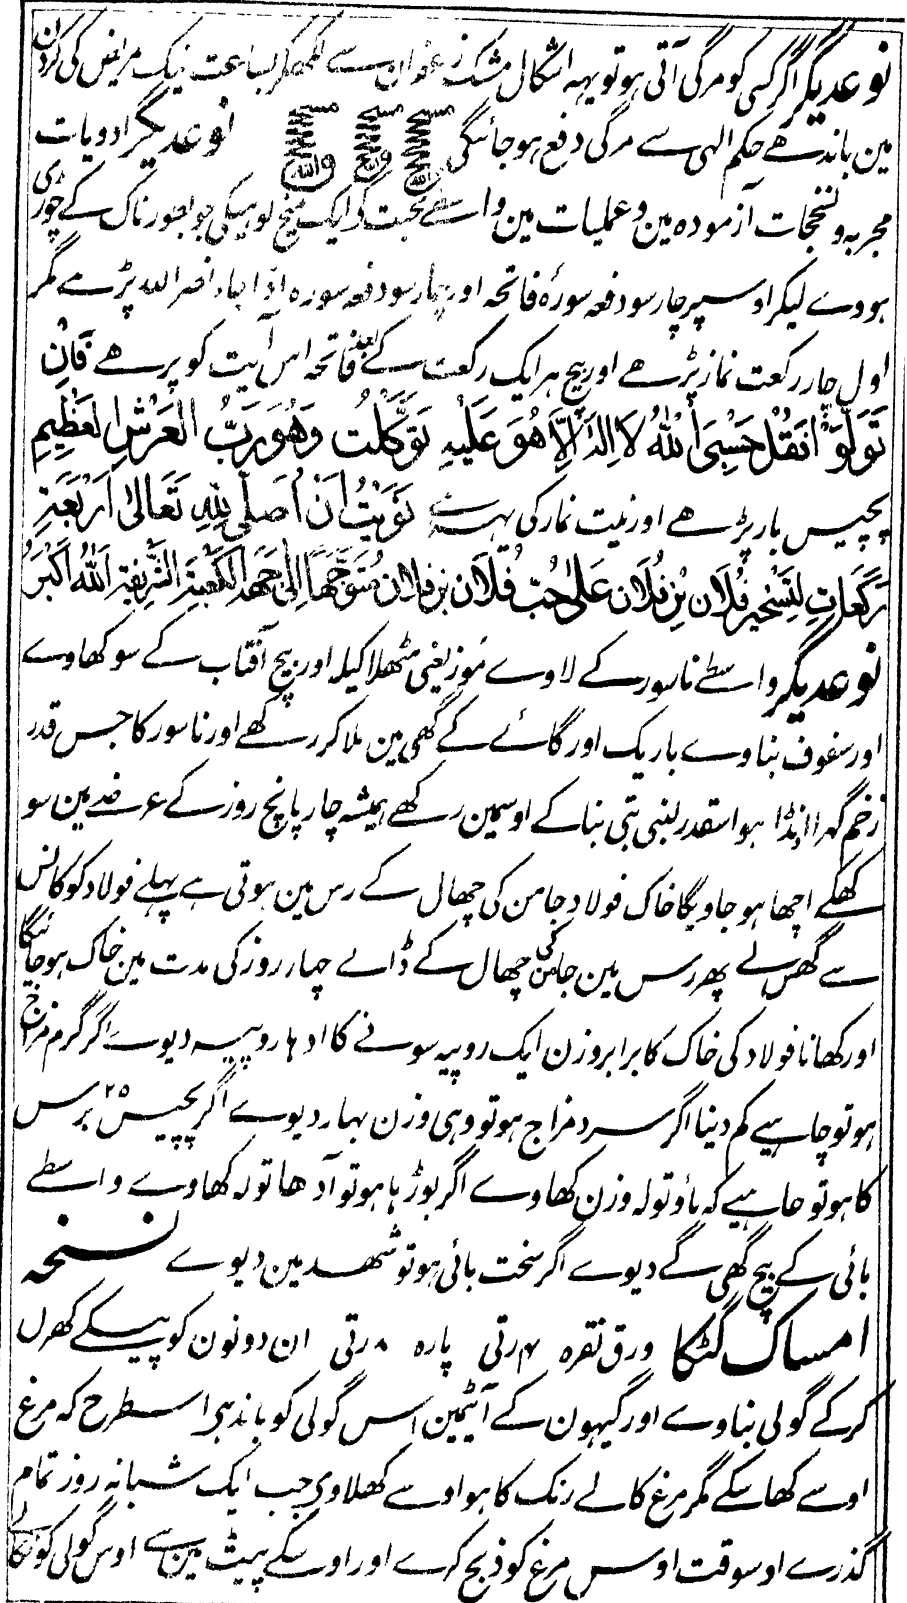 نوعدیگر اگر کسی کو مرگی آتی ہو تو یہہ اشکال مشک زعفران سے لکھکر بساعت نیک مریض کی گردن
مین باندھے حکم الہی سے مرگی دفع ہو جائیگی نوعدیگر ادویات
مجربہ و نسخجات آزمودہ مین و عملیات مین واسطے محبت کی ایک میخ لوہیکی جو بصور ناک کے چوڑی
ہووے لیکر اوسپر چار سو دفعہ سورۂ فاتحہ اور چار سو دفعہ سورہ اذا جاء نصر اللہ پڑہے مگر
اول چار رکعت نماز پڑہے اور بیچ ہر ایک رکعت کے بعد فاتحہ اس آیت کو پڑہے فَاِنْ
تَوَلَّوْا فَقُلْ حَسْبِیَ اللّٰهُ لَا اِلٰهَ اِلَّا هُوَ عَلَیْهِ تَوَکَّلْتُ وَهُوَ رَبُّ الْعَرْشِ الْعَظِیْمِ
پچیس بار پڑہے اور نیت نماز کی یہہ ہے نَوَیْتُ اَنْ اُصَلِّیَ لِلّٰهِ تَعَالٰی اَرْبَعَةَ
رَکَعَاتٍ لِتَسْخِیْرِ فُلَانْ بْنِ فُلَانْ عَلٰی حُبِّ فُلَانْ بْنِ فُلَانْ مُتَوَجِّهًا اِلٰی جِهَةِ الْکَعْبَةِ الشَّرِیْفَةِ اَللّٰهُ اَکْبَرُ
نوعدیگر واسطے ناسور کے لاوے موز یعنی مٹھلا کیلہ اور بیچ آفتاب کے سوکھاوے
اور سفوف بناوے باریک اور گائے کے گھی مین ملا کر رکھے اور ناسور کا جس قدر
زخم گہرا ہو اسقدر لنبی بتی بنا کے اوسمین رکھے ہمیشہ چار پانچ روز کے عرصے مین سو
کھکے اچھا ہو جاویگا خاک فولاد جامن کی چھال کے رس مین ہوتی ہے پہلے فولاد کو کانس
سے گھس لے پھر رس مین جامن کی چھال کے ڈالے چہار روز کی مدت مین خاک ہو جائیگا
اور کھانا فولاد کی خاک کا برابر وزن ایک روپیہ سونے کا ادہا روپیہ دیوے اگر گرم مزاج
ہو تو چاہیے کم دینا اگر سرد مزاج ہو تو وہی وزن بہار دیوے اگر پچیس ۲۵ برس
کا ہو تو چاہیے کہ پاؤ تولہ وزن کھاوے اگر بوڑہا ہو تو آدھا تولہ کھاوے واسطے
بائی کے بیچ گھی کے دیوے اگر سخت بائی ہو تو شہد مین دیوے نسخہ
امساک گٹکا ورق نقرہ ۴ رتی پارہ ۸ رتی ان دونون کو پیسکے کھرل
کر کے گولی بناوے اور گیہون کے آٹیمین اس گولی کو باندہی اسطرح کہ مرغ
اوسے کھا سکے مگر مرغ کالے رنگ کا ہو اوسے کھلاوی جب ایک شبانہ روز تمام
گذرے اوسوقت اوس مرغ کو ذبح کرے اور اوسکے پیٹ مین سے اوس گولی کو نکالے